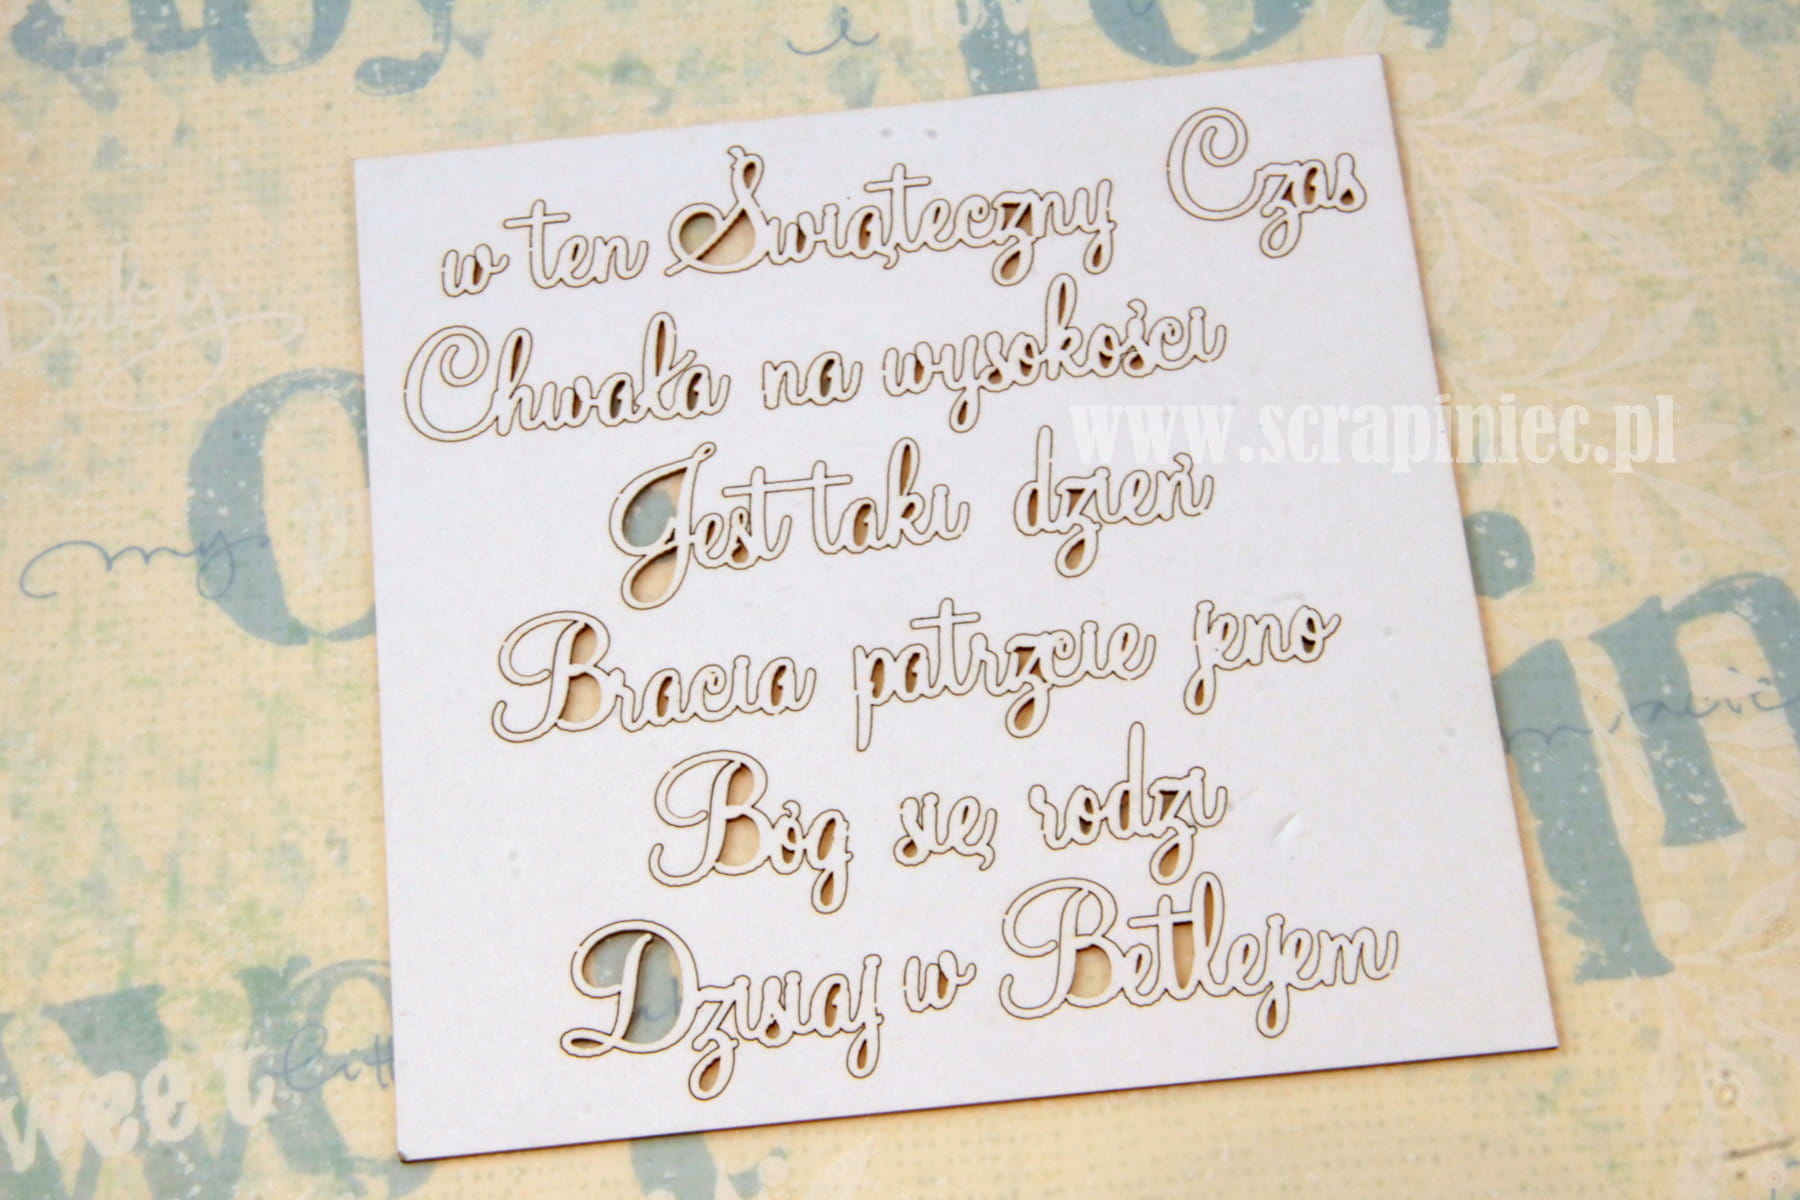 w ten Świąteczny Czas
Chwała na wysokości
www.scrapiniec.pl
Jest taki dzień
Bracia patrzcie jeno
Bóg się rodzi
Dzisiaj w Betlejem
my